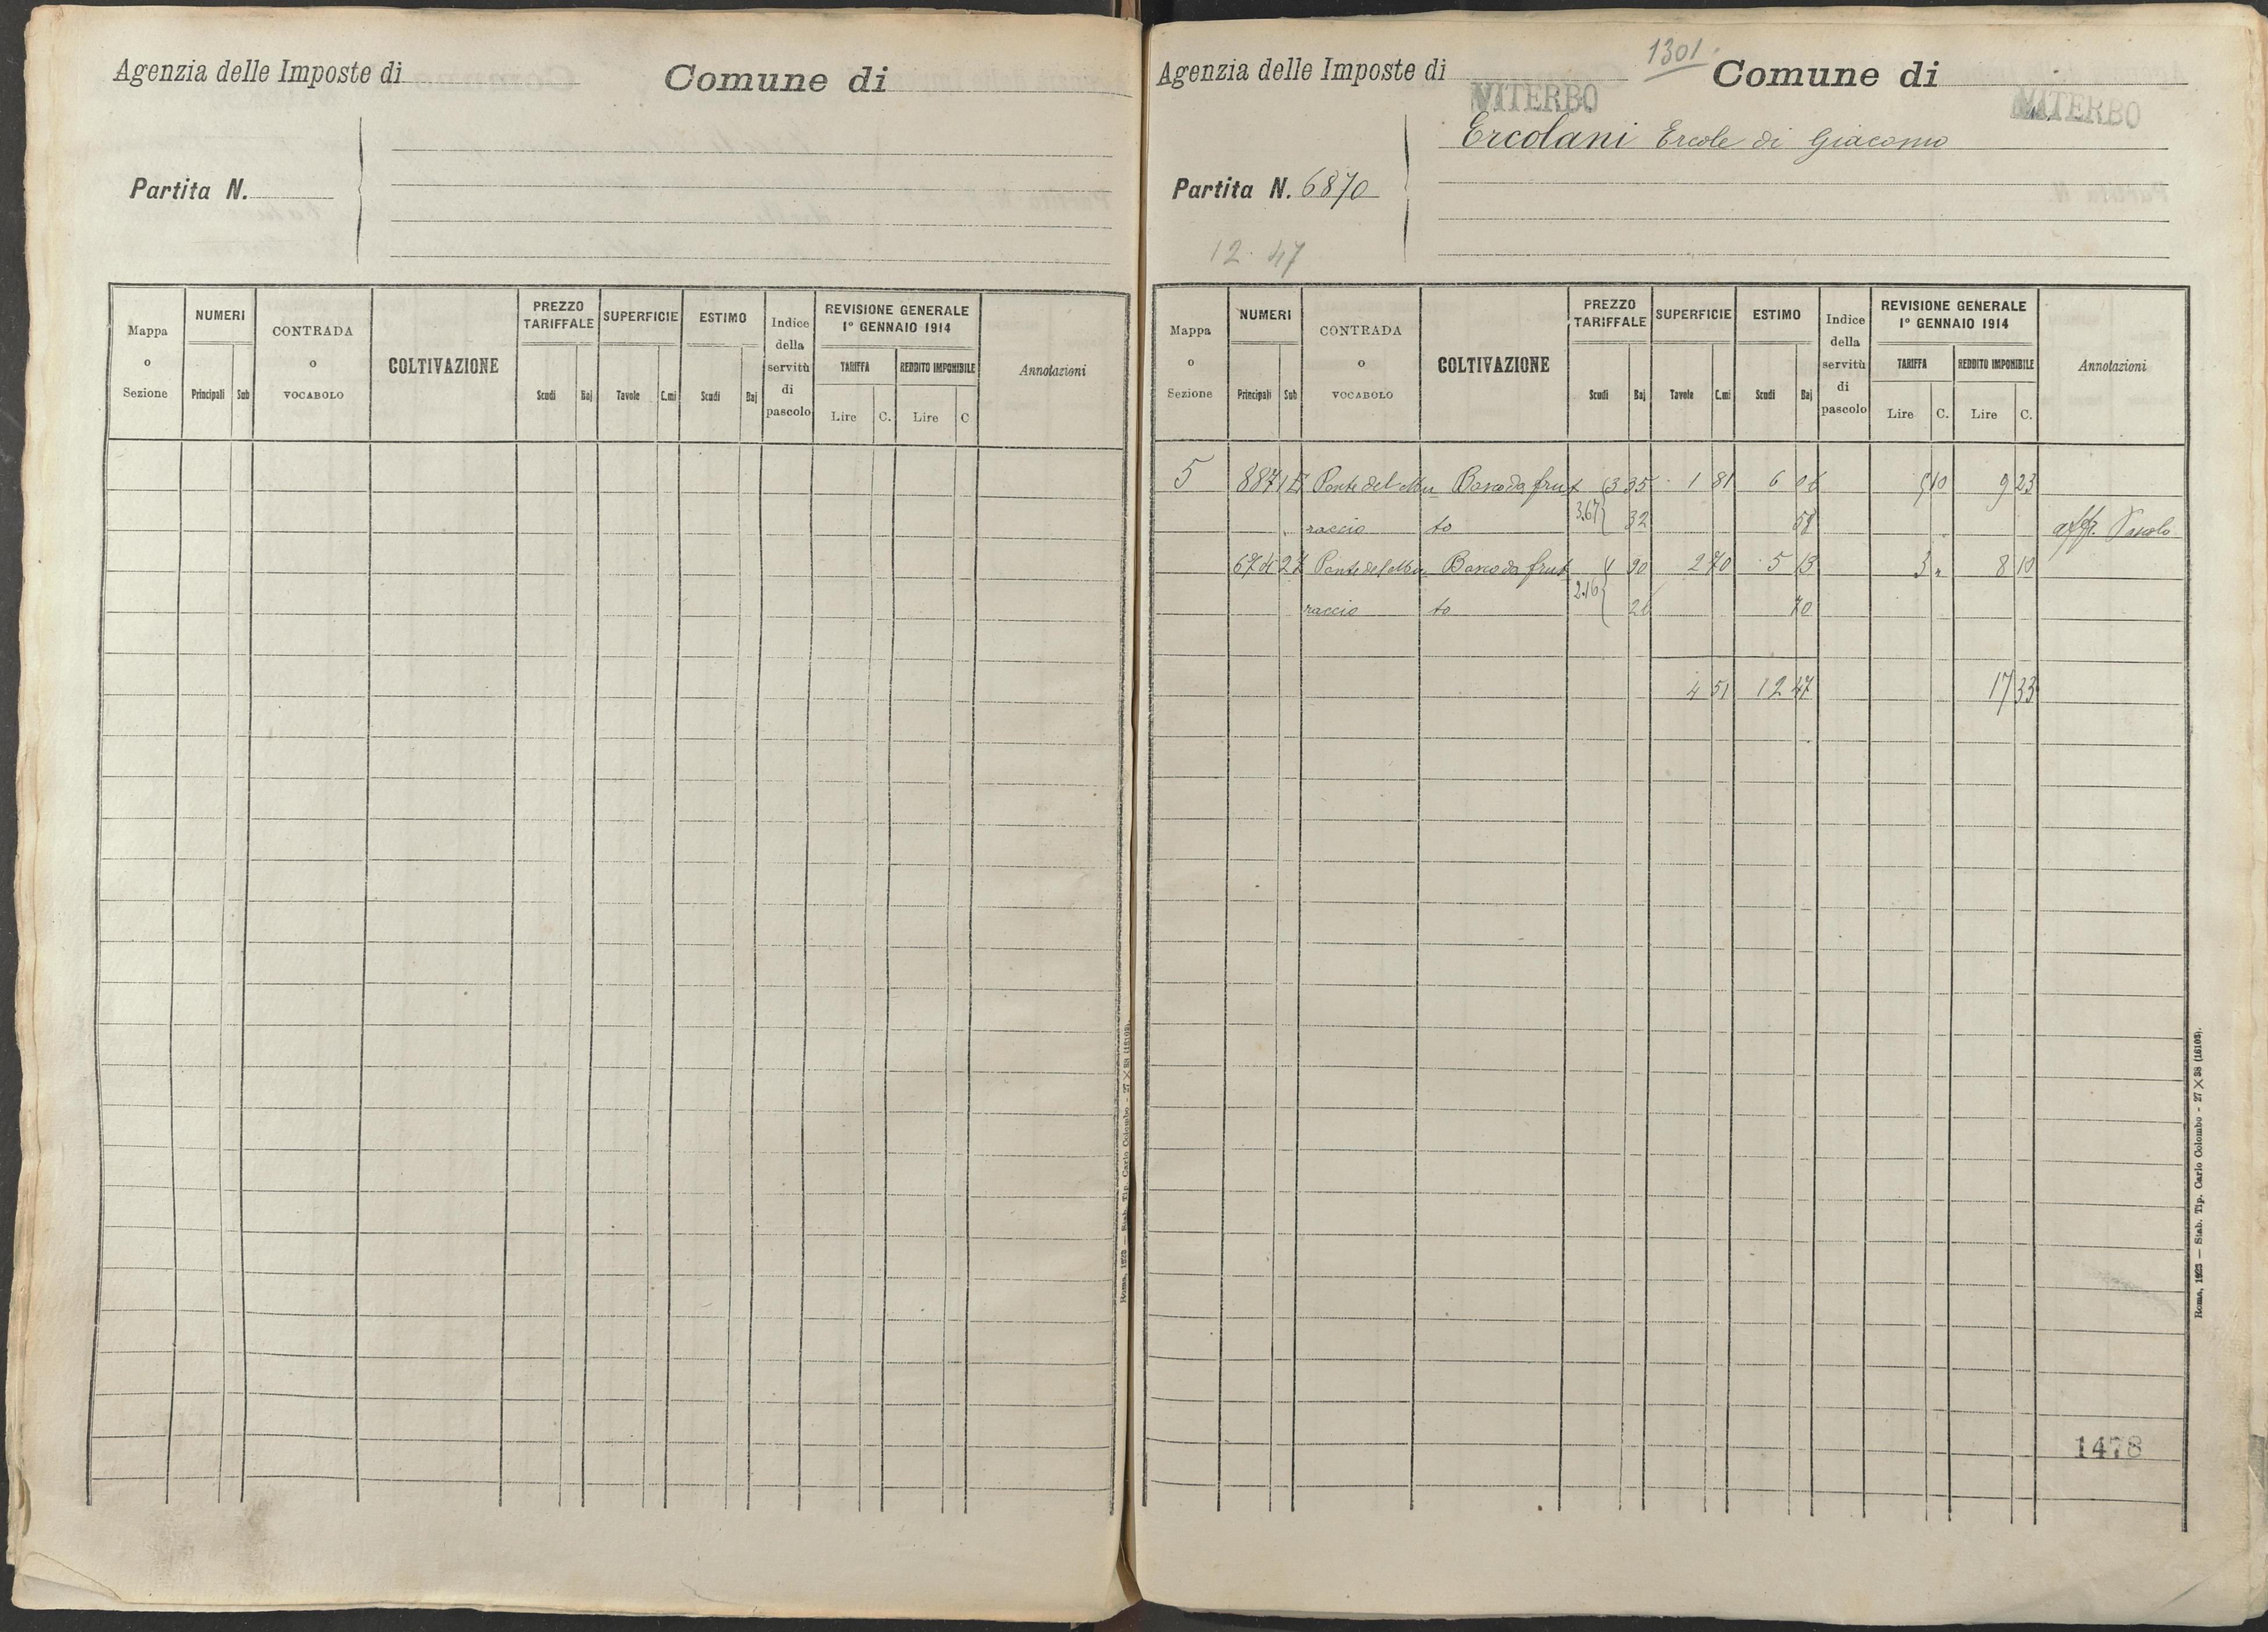 Agenzia delle Imposte di
Comune di
Partita N.
Mappa o Sezione
NUMERI
Principali Sub
CONTRADA o VOCABOLO
COLTIVAZIONE
PREZZO TARIFFALE
Scudi Baj
SUPERFICIE
Tavole C.mi
ESTIMO
Scudi Baj
Indice della servitù di pascolo
REVISIONE GENERALE
1° GENNAIO 1914
TARIFFA
Lire C.
REDDITO IMPONIBILE
Lire C
Annotazioni
Roma, 1923 — Stab. Tip. Carlo Colombo - 27 × 38 (16103).
1301.
Agenzia delle Imposte di VITERBO
Comune di VITERBO
Ercolani Ercole di Giacomo
Partita N. 6870
12.47
Mappa o Sezione
NUMERI
Principali Sub
CONTRADA o VOCABOLO
COLTIVAZIONE
PREZZO TARIFFALE
Scudi Baj
SUPERFICIE
Tavole C.mi
ESTIMO
Scudi Baj
Indice della servitù di pascolo
REVISIONE GENERALE
1° GENNAIO 1914
TARIFFA
Lire C.
REDDITO IMPONIBILE
Lire C.
Annotazioni
5 Ponte del Mu Bosco da frut 3 35 1 81 6 06 5 10 9 23
raccio to 3.67 32 58 affr. Pascolo
Ponte del Mu Bosco da frut 1 90 2 70 5 13 3 " 8 10
raccio to 2.16 26 70
4 51 12 47 17 33
1478
Roma, 1923 — Stab. Tip. Carlo Colombo - 27 × 38 (16103).